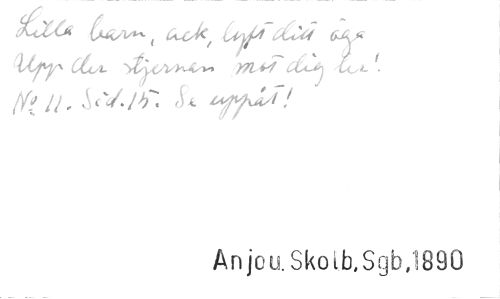 Lilla barn, ack, lyft ditt öga
Upp der stjernan mot dig ler!
No 11. Sid. 15. Se uppåt!
Anjou. Skolb, Sgb, 1890